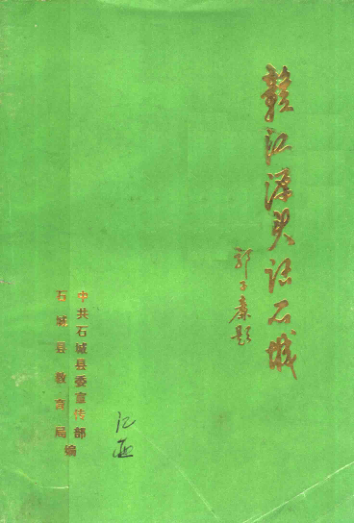 赣江源头话石城
郭子廉题
中共石城县委宣传部
石城县教育局
编